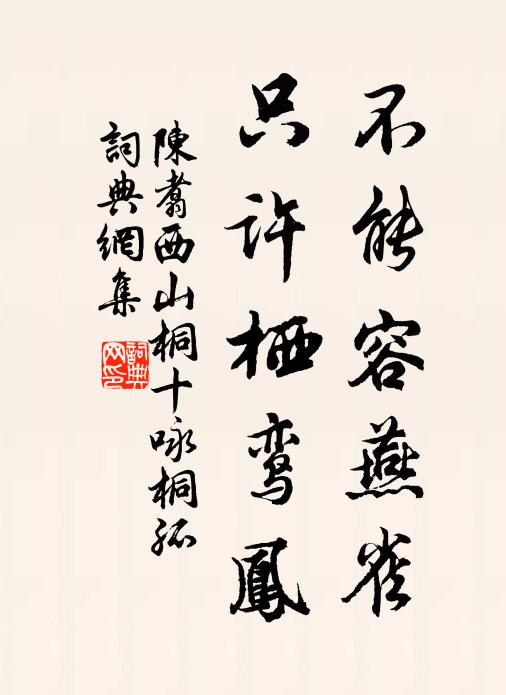 不能容燕雀
只许栖鸾鳳
陳翥西山桐十咏桐孤
詞典網集
詞典網印